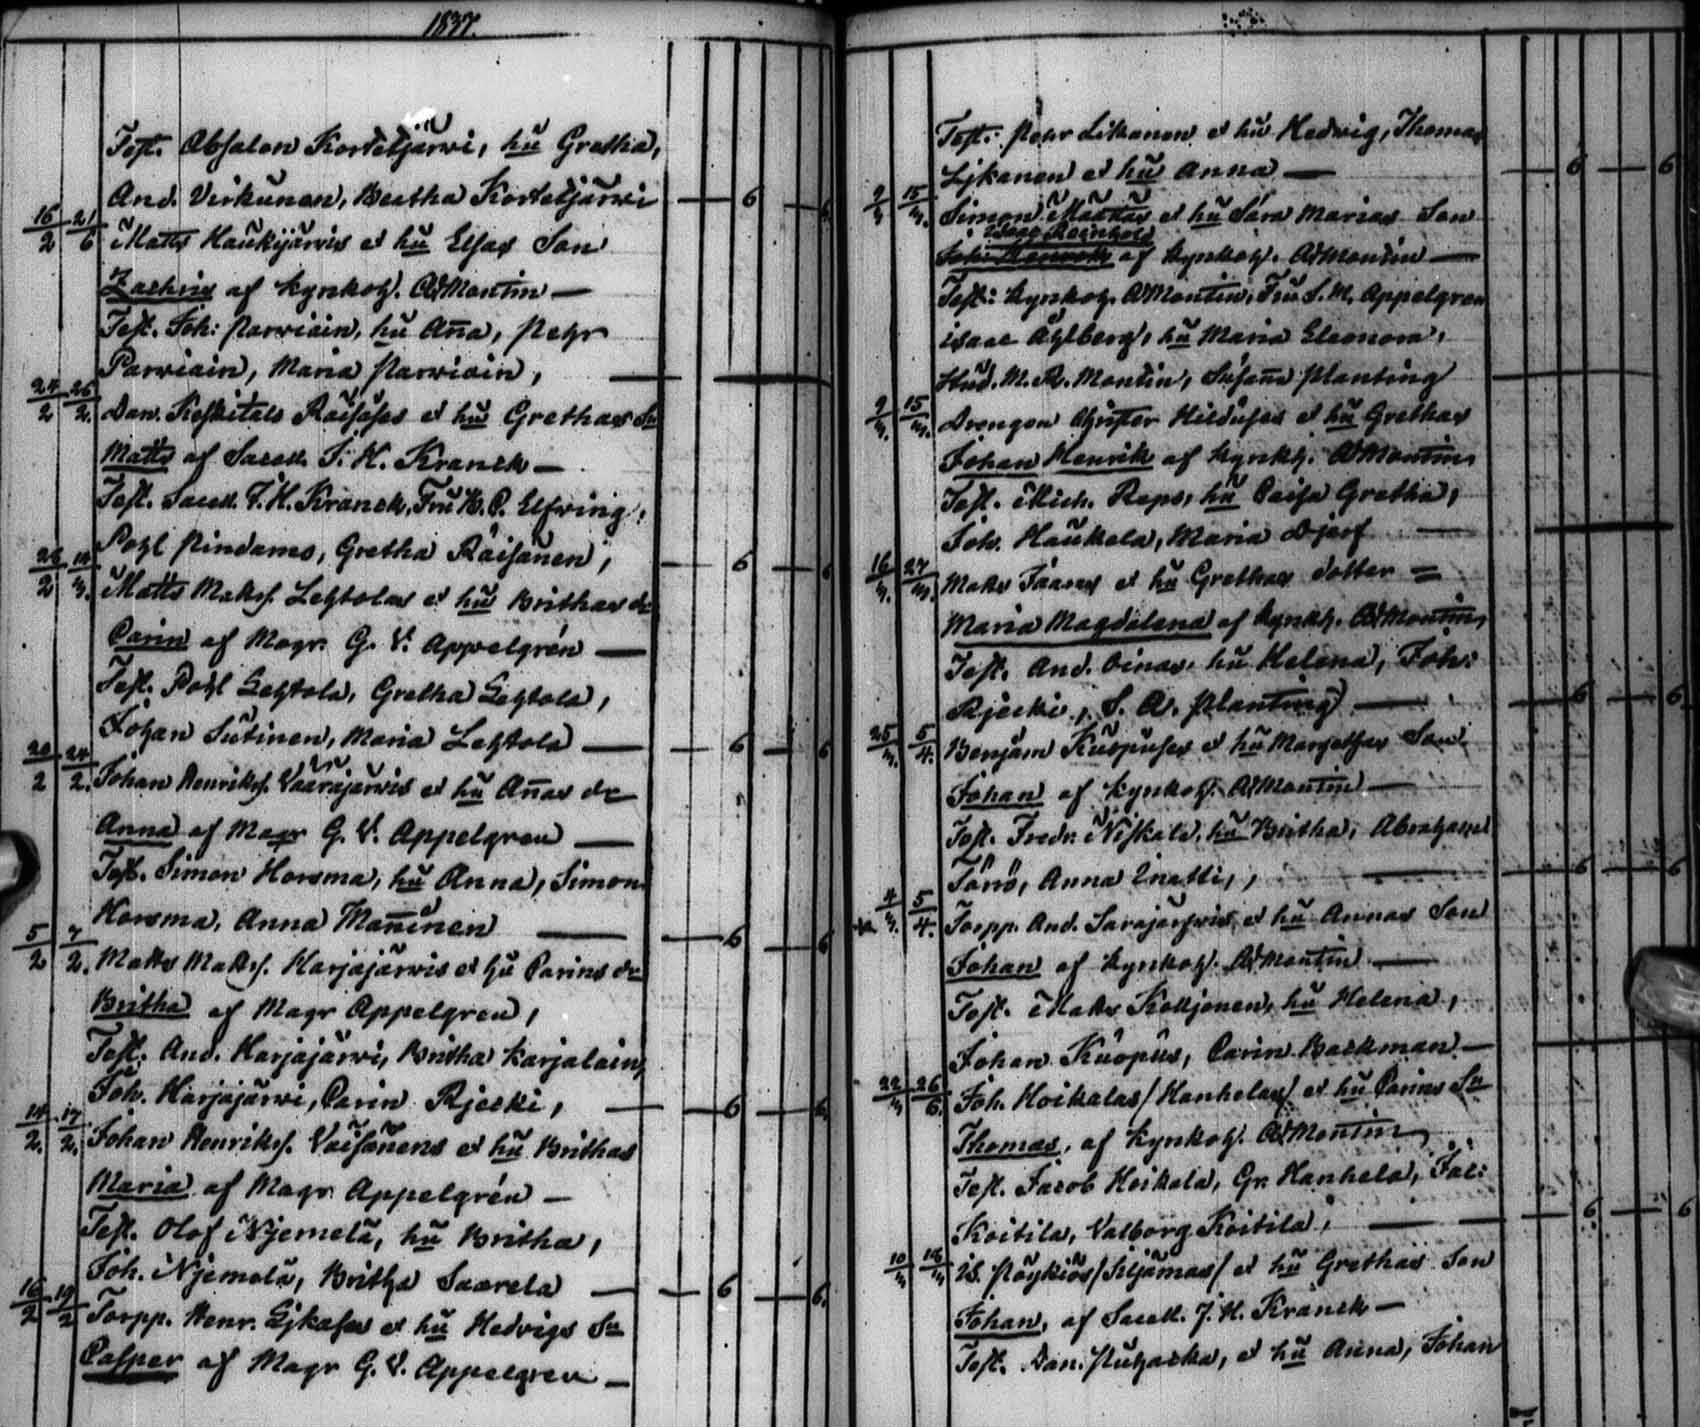 1837.
Test. Absalon Kortetjärwi, hu Gretha,
And. Virkunen, Beatha Kortetjärwi — 6 — 6
16/2 21/6 Matts Haukijärwis et hu Elsas Son
Zachris af Kyrkoh. Ad Montin —
Test. Joh: Parwiain, hu Anna, Pehr
Parwiain, Maria Parwiain,
24/2 26/2. Dan. Keskitalo Räisäses et hu Grethas Sn
Matts af Sacell. J. H. Kranck —
Test. Sacell. J. H. Kranck, Fru H. C. Elfving,
Pohl Pindamo, Gretha Räisänen, — 6 — 6
Matts Matss. Lehtolas et hu Brithas dr
Carin af Magr. G. V. Appelgrén —
Test. Pohl Lehtola, Gretha Lehtola,
Johan Sutinen, Maria Lehtola — 6 — 6
20/2 24/2. Johan Henrikss. Vaarajärwis et hu Annas dr
Anna af Magr G. V. Appelgren —
Test. Simon Horsma, hu Anna, Simon
Horsma, Anna Manninen — 6 — 6
5/2 7/2. Matts Matss. Harjajärwis et hu Carins dr
Britha af Magr Appelgren,
Test. And. Harjajärwi, Britha Karjalain,
Joh. Harjajärwi, Carin Rjecki, — 6 — 6
14/2. 17/2. Johan Henrikss. Väisänens et hu Brithas
Maria af Magr Appelgrén —
Test. Olof Njemelä, hu Britha,
Joh. Njemelä, Britha Saarela — 6 — 6.
16/2 19/2 Torpp. Henr. Lykases et hu Hedvigs Sn
Casper af Magr G. V. Appelgren —
Test: Pehr Likanen et hu Hedvig, Thomas
Lykanen et hu Anna — 6 — 6
Simon Mattas et hu Sara Marias Son
Isaac Reinhold
af Kyrkoh. Ad Montin —
Test: Kyrkoh. Ad Montin, Fru S. M. Appelgren
Isaac Ahlberg, hu Maria Eleonora,
M. R. Montin, Susanna Planting
Drengen Christer Hilduses et hu Grethas
Johan Henrik af Kyrkh. Ad Montin
Test. Mich. Reps, hu Caisa Gretha,
Joh. Haukela, Maria Djerf
Matts et hu Grethas dotter =
Maria Magdalena af Kyrkh. Ad Montin,
Test. And. Oinas, hu Helena, Joh:
Rjecki, S. A. Planting — 6 — 6
Benjam Kuopuses et hu Margethas Son
Johan af Kyrkoh. Ad Montin —
Test. Fredr. Niskala, hu Britha, Abraham
Törö, Anna Inatti, — 6 — 6
Torpp. And. Sarajärwis et hu Annas Son
Johan af Kyrkoh. Ad Montin —
Test. Matts Kolljonen, hu Helena,
Johan Kuopus, Carin Backman —
Joh. Hoikalas /Hanhelas/ et hu Carins Sn
Thomas, af Kyrkoh. Ad Montin,
Test. Jacob Hoikala, Gr. Hanhela, Jac:
Koitila, Valborg Koitila, — 6 — 6
Is. Pöykiös /Siljämas/ et hu Grethas Son
Johan, af Sacell. J. H. Kranck —
Test. Dan. Puhacka, et hu Anna, Johan